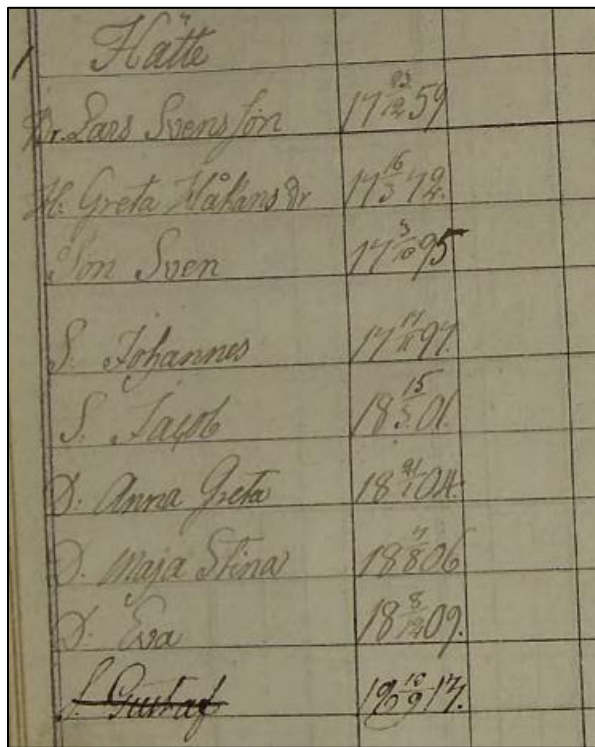 Hätte
Dr. Lars Svensson 17 23/12 59
H. Greta Håkans dr 17 16/3 72.
Son Sven 17 3/10 95
S. Johannes 17 17/11 97.
S. Jacob 18 15/3 01.
D. Anna Greta 18 21/1 04.
D. Maja Stina 18 7/8 06
D. Eva 18 8/12 09.
S. Gustaf 18 10/9 17.